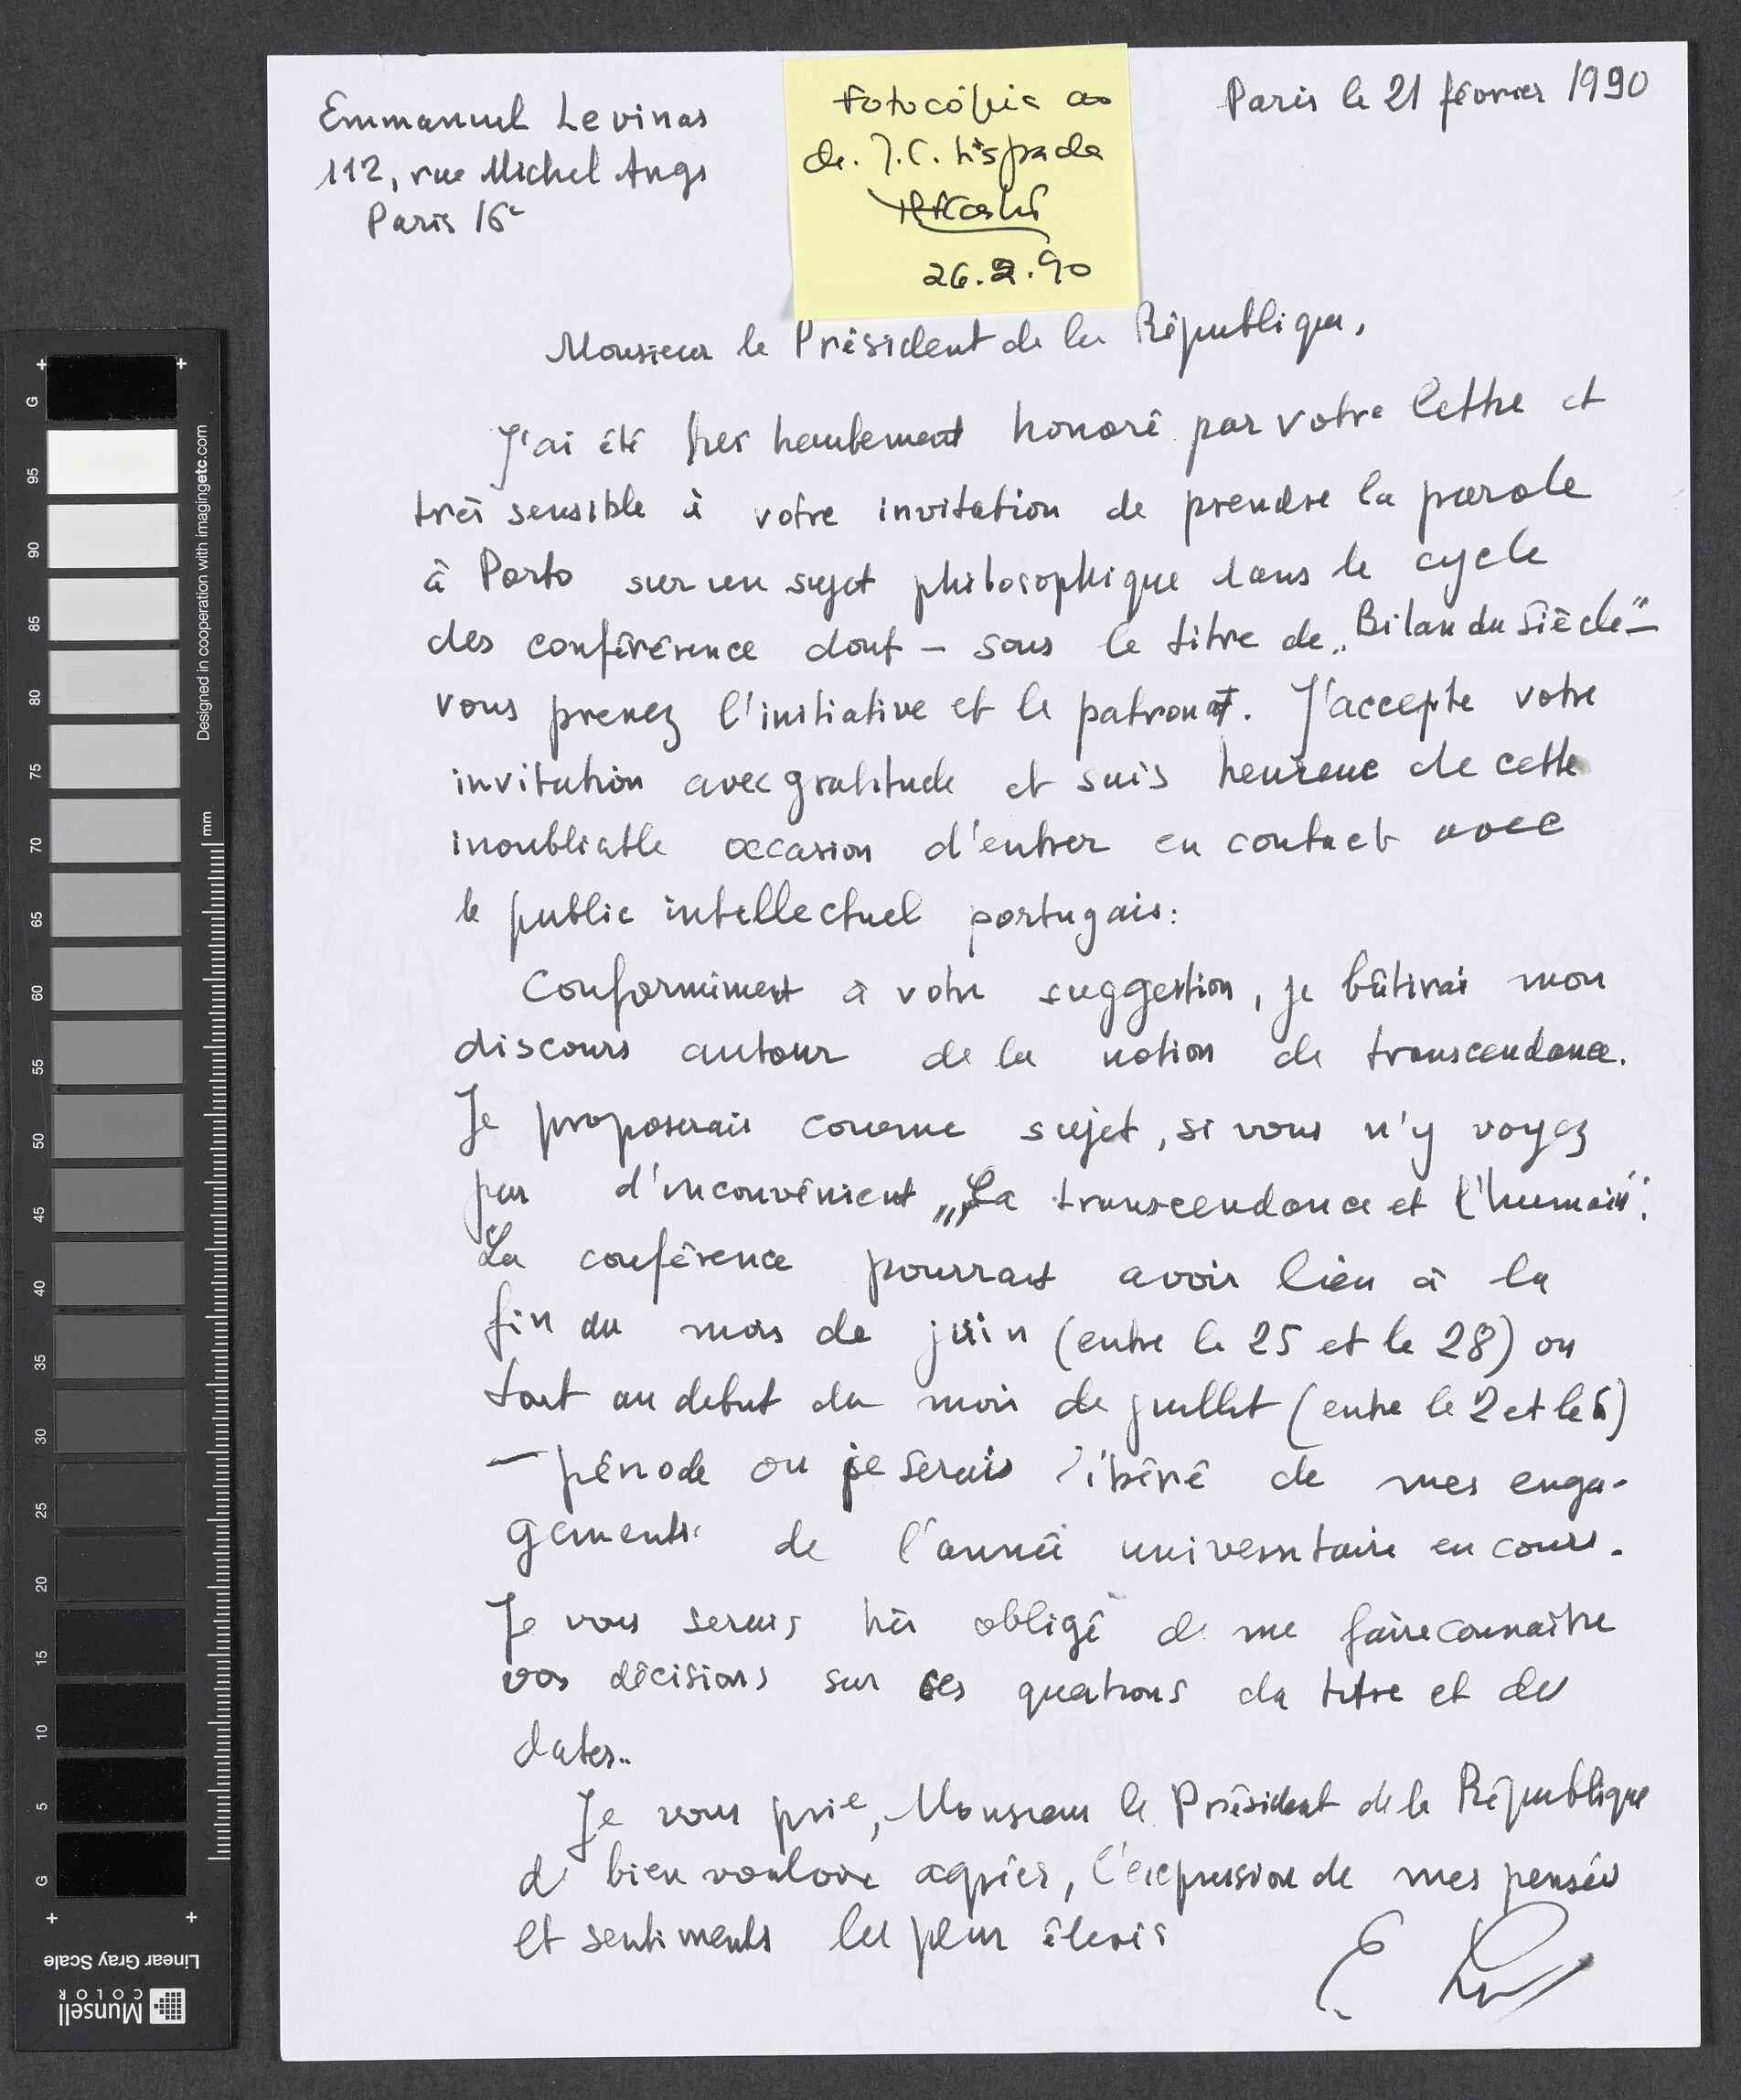 Emmanuel Levinas
112, rue Michel Ange
Paris 16e
Fotocópia ao
dr. J. C. Espada
26.2.90
Paris le 21 février 1990
Monsieur le Président de la République,
J'ai été très hautement honoré par votre lettre et
très sensible à votre invitation de prendre la parole
à Porto sur un sujet philosophique dans le cycle
des conférérence dont – sous le titre de „Bilan du Siècle" –
vous prenez l'initiative et le patronat. J'accepte votre
invitation avec gratitude et suis heureux de cette
inoubliable occasion d'entrer en contact avec
le public intellectuel portugais:
Conformément à votre suggestion, je bâtirai mon
discours autour de la notion de transcendance.
Je proposerais comme sujet, si vous n'y voyez
pas d'inconvénient „La transcendance et l'humain".
La conférence pourrait avoir lieu à la
fin du mois de juin (entre le 25 et le 28) ou
tout au debut du mois de juillet (entre le 2 et le 6)
– période ou je serais libéré de mes enga-
gements de l'année universitaire en cours.
Je vous serais très obligé de me faire connaître
vos décisions sur ces questions du titre et des
dates..
Je vous prie, Monsieur le Président de la République
de bien vouloir agréer, l'expression de mes pensées
et sentiments les plus élevés
G
95
90
85
80
75
70
65
60
55
50
45
40
35
30
25
20
15
10
5
G
mm
Designed in cooperation with imagingetc.com
Linear Gray Scale
Munsell
COLOR